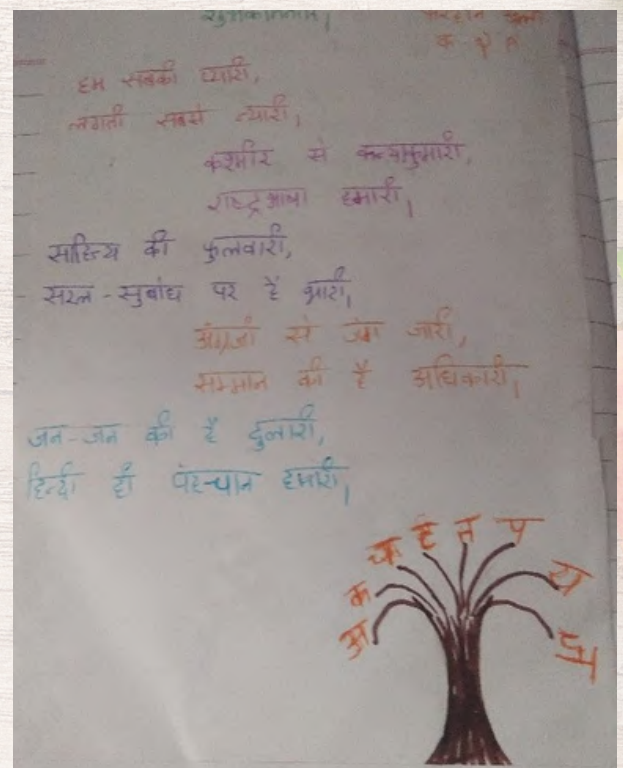 शुभकामनाएं।
क-9 A
हम सबकी प्यारी,
लगती सबसे न्यारी,
कश्मीर से कन्याकुमारी,
राष्ट्रभाषा हमारी,
साहित्य की फुलवारी,
सरल-सुबोध पर है भारी,
अंग्रेजी से जंग जारी,
सम्मान की है अधिकारी,
जन-जन की है दुलारी,
हिन्दी ही पहचान हमारी,
अ क च ट त प य